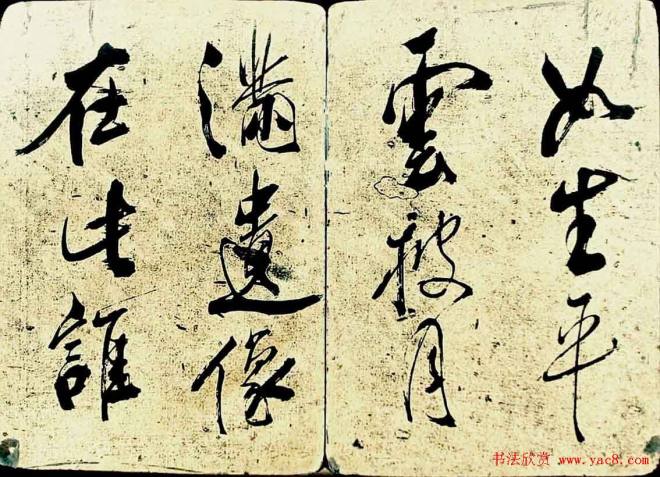 如生平
雲披月
滿遺像
在此誰
书法欣赏 www.yac8.com